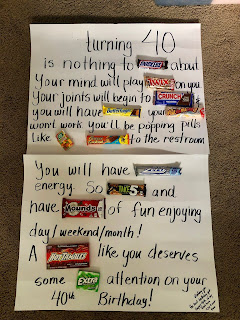 turning 40
is nothing to about
Your mind will play on you
Your joints will begin to CRUNCH
you will have Butterfinger your
wont work you'll be popping pills
like to the restroom
You will have
energy. So and
have Mounds of fun enjoying
day/weekend/month!
A HOT TAMALES like you deserves
some Extra attention on your
40th Birthday!